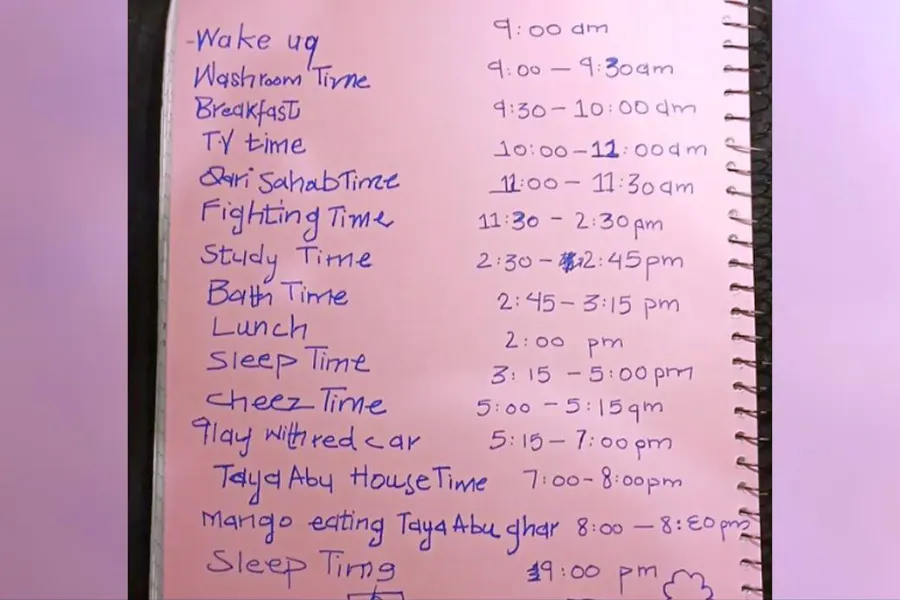 -Wake uq 9:00 am
Washroom Time 9:00 - 9:30am
Breakfast 9:30 - 10:00 am
T.V time 10:00 - 11:00am
Qari Sahab Time 11:00 - 11:30am
Fighting Time 11:30 - 2:30pm
Study Time 2:30 - 2:45pm
Bath Time 2:45 - 3:15 pm
Lunch 2:00 pm
Sleep Time 3:15 - 5:00pm
cheez Time 5:00 - 5:15qm
Play with red car 5:15 - 7:00pm
Taya Abu House Time 7:00 - 8:00pm
Mango eating Taya Abu ghar 8:00 - 8:30pm
Sleep Time 9:00 pm